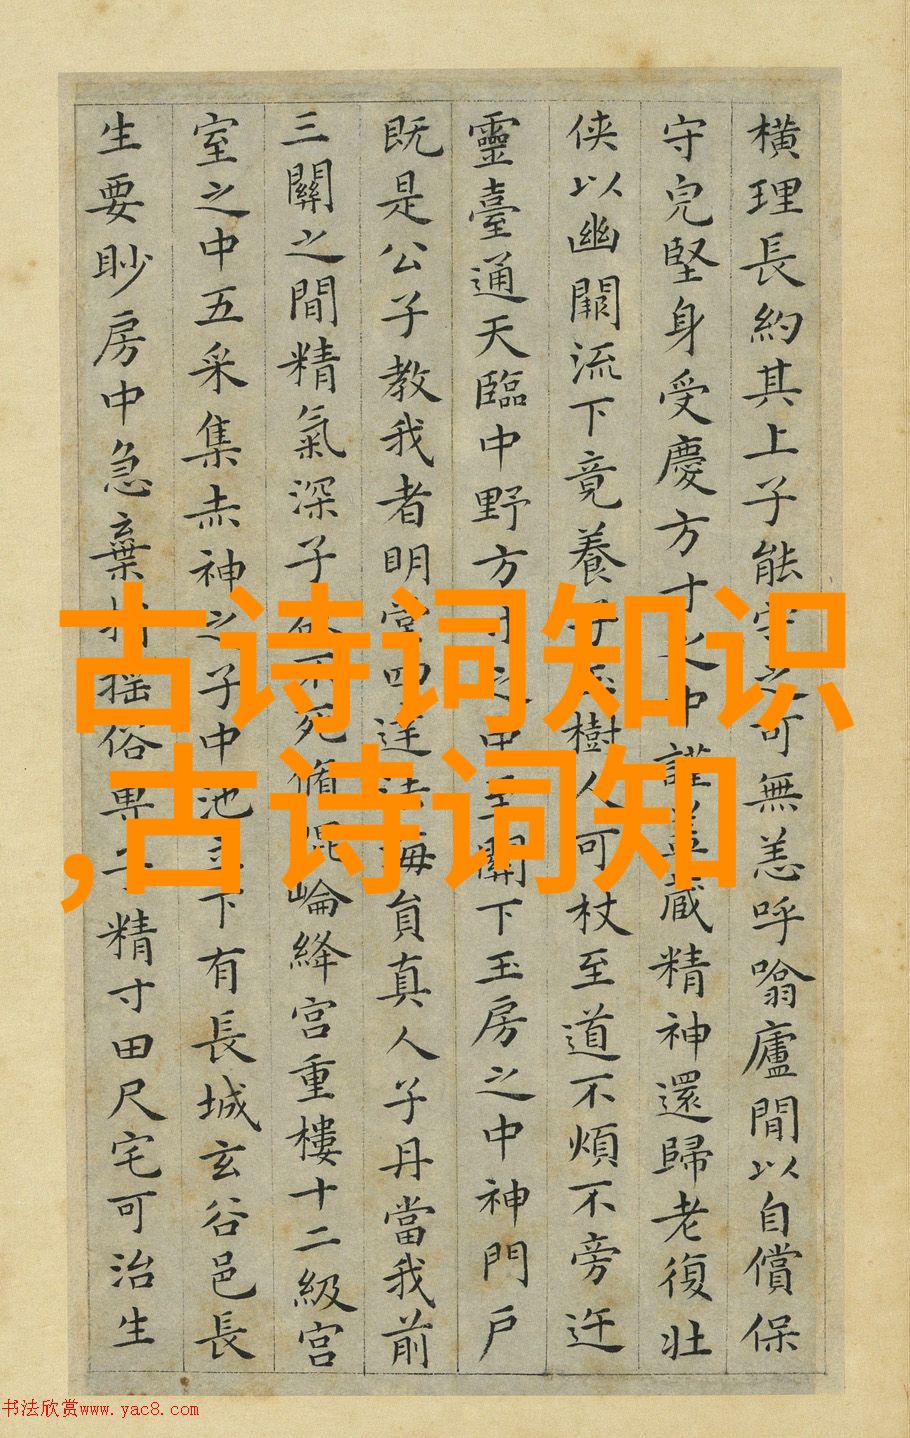 橫理長約其上子能守之可無恙呼噏廬間以自償保
守完堅身受慶方寸之中謹蓋藏精神還歸老復壯
俠以幽闕流下竟養子玉樹人可杖至道不煩不旁迕
靈臺通天臨中野方寸之中至關下玉房之中神門戶
既是公子教我者明堂四達法海員真人子丹當我前
三關之間精氣深子欲不死脩崑崙絳宮重樓十二級宮
室之中五采集赤神之子中池立下有長城玄谷邑長
生要眇房中急棄捐搖俗專子精寸田尺宅可治生
古诗词知识
,古诗词知
书法欣赏www.yac8.com